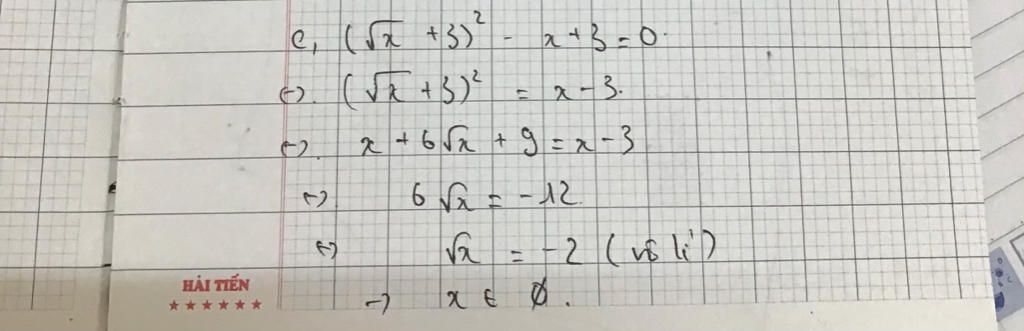 e, (√x + 3)² - x + 3 = 0.
↔. (√x + 3)² = x - 3.
↔. x + 6√x + 9 = x - 3
↔ 6√x = -12.
↔ √x = -2 (vô lí)
HẢI TIẾN
→ x ∈ ∅.